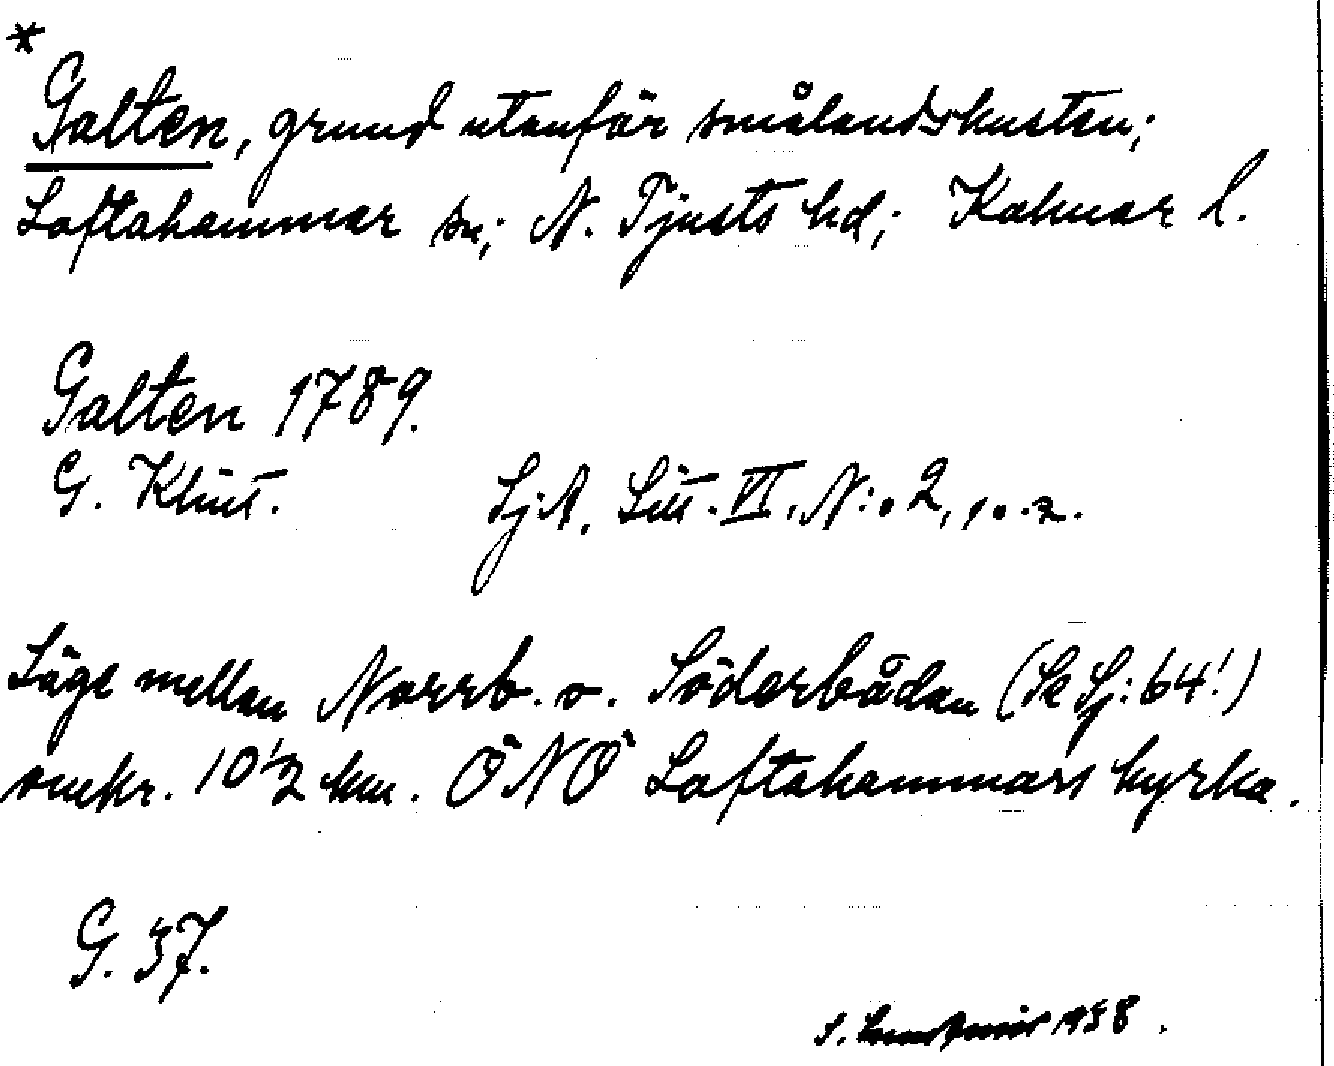 *
Galten, grund utanför smålandskusten;
Loftahammar sn; N. Tjusts hd; Kalmar l.
Galten 1789.
G. Klint. SjA. Litt. VI. N:o 2, s. 2.
Läge mellan Norrb. o. Söderbådan (Se Sj: 64!)
omkr. 10 1/2 km. ÖNÖ Loftahammars kyrka.
G. 37.
S. 1938.